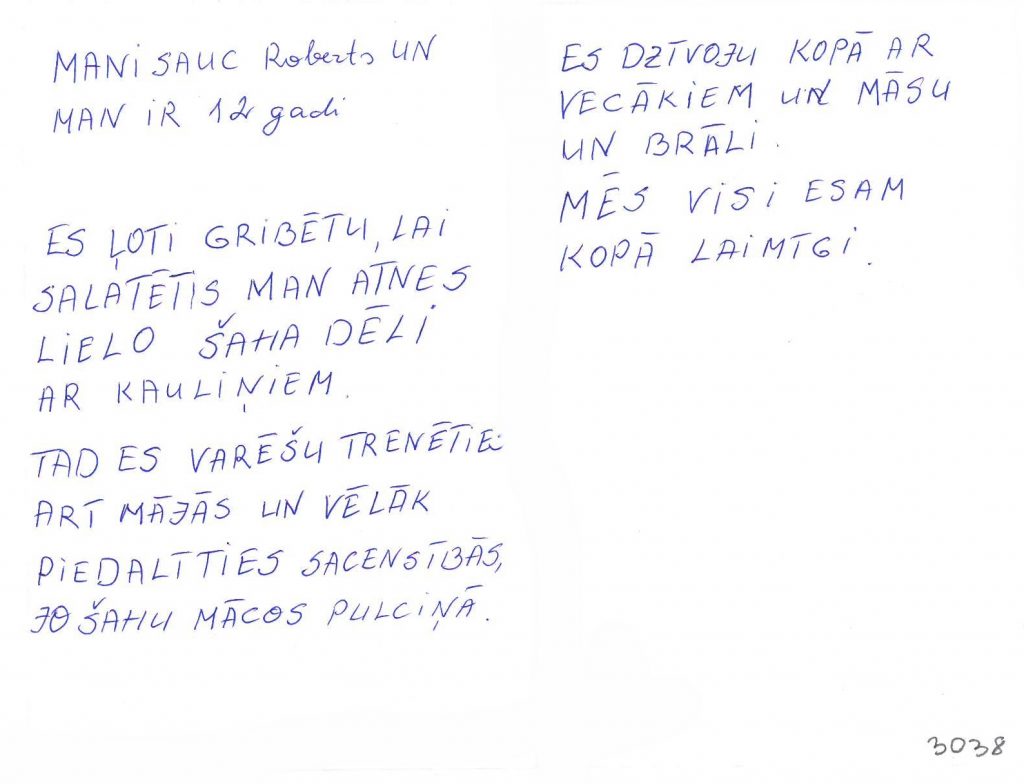 MANI SAUC Roberts UN
MAN IR 12 gadi
ES ĻOTI GRIBĒTU, LAI
SALATĒTIS MAN ATNES
LIELO ŠAHA DĒLI
AR KAULIŅIEM.
TAD ES VARĒŠU TRENĒTIES
ARĪ MĀJĀS UN VĒLĀK
PIEDALĪTTIES SACENSĪBĀS,
JO ŠAHU MĀCOS PULCIŅĀ.
ES DZĪVOJU KOPĀ AR
VECĀKIEM UN MĀSU
UN BRĀLI.
MĒS VISI ESAM
KOPĀ LAIMĪGI.
3038